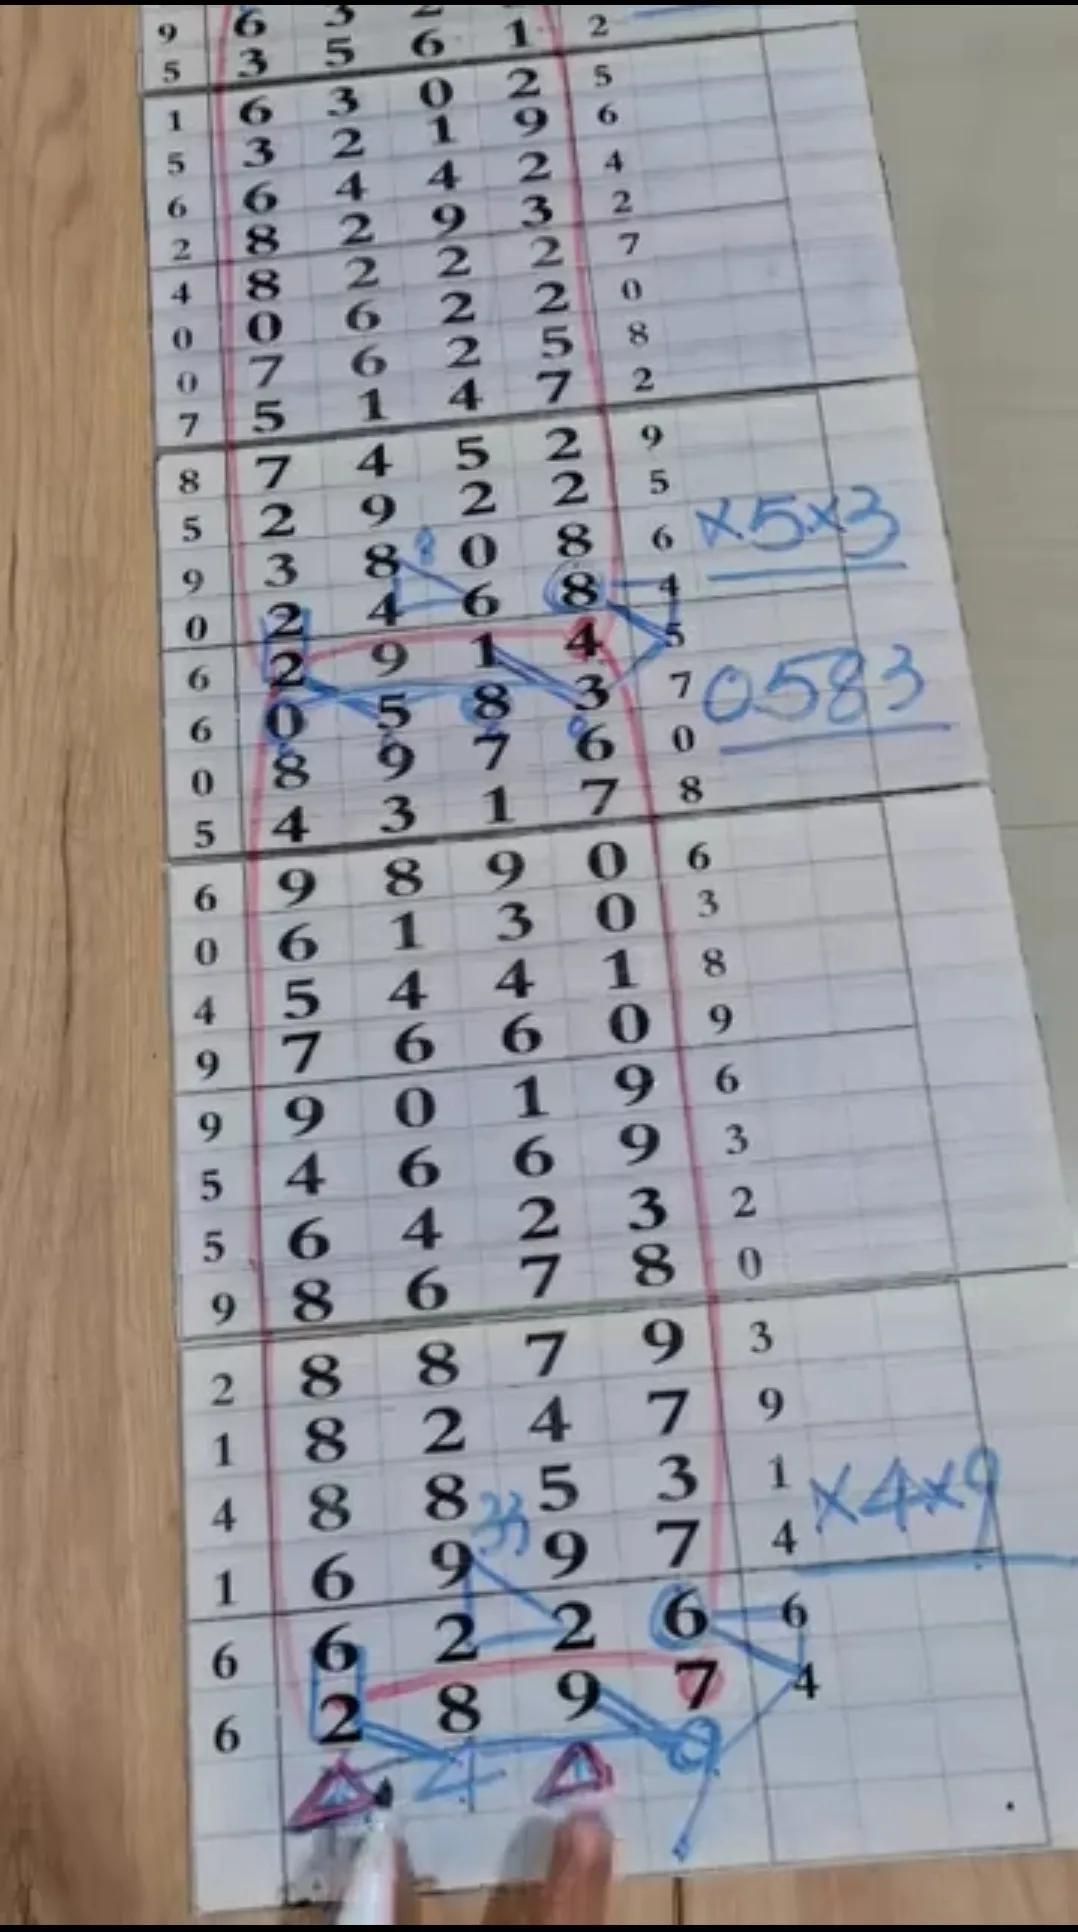 9 6 3 2
5 3 5 6 1 2
1 6 3 0 2 5
5 3 2 1 9 6
6 6 4 4 2 4
2 8 2 9 3 2
4 8 2 2 2 7
0 0 6 2 2 0
0 7 6 2 5 8
7 5 1 4 7 2
8 7 4 5 2 9
5 2 9 2 2 5
9 3 8 8 0 8 6 x5x3
0 2 4 6 8 4
6 2 9 1 4 5
6 0 5 8 3 7 0583
0 8 9 7 6 0
5 4 3 1 7 8
6 9 8 9 0 6
0 6 1 3 0 3
4 5 4 4 1 8
9 7 6 6 0 9
9 9 0 1 9 6
5 4 6 6 9 3
5 6 4 2 3 2
9 8 6 7 8 0
2 8 8 7 9 3
1 8 2 4 7 9
4 8 8 5 3 1 x4x9
33
1 6 9 9 7 4
6 6 2 2 6 6
6 2 8 9 7 4
4 9